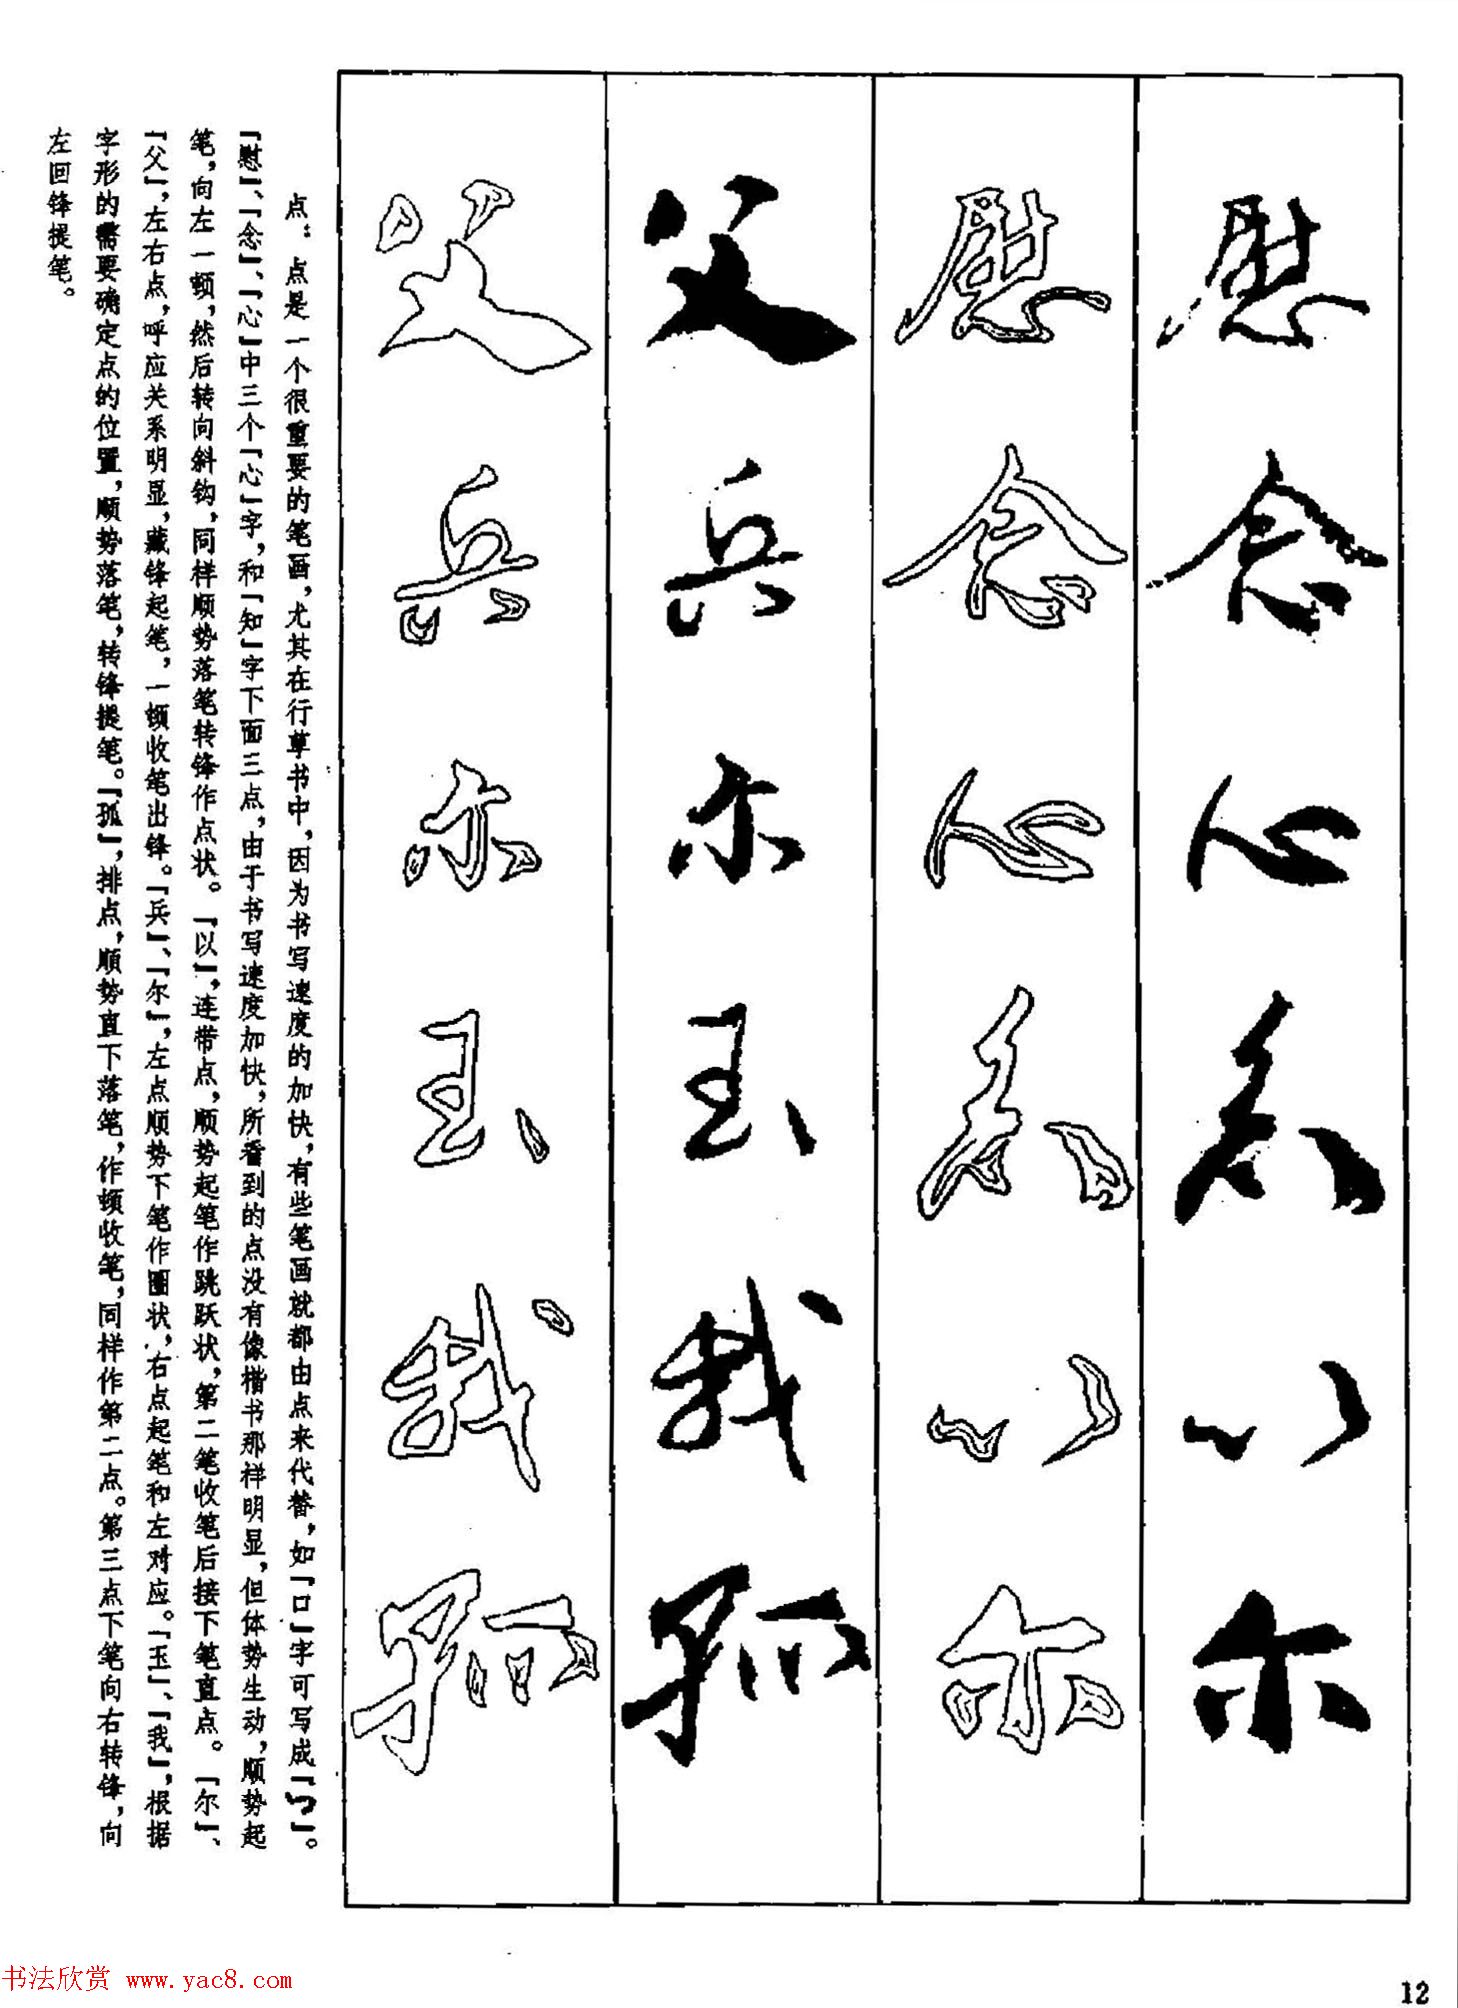 慰念心知以尔
慰念心知以尔
父兵尔玉我孤
父兵尔玉我孤
点：点是一个很重要的笔画，尤其在行草书中，因为书写速度的加快，有些笔画就都由点来代替，如「口」字可写成「」。
「慰」、「念」、「心」中三个「心」字，和「知」字下面三点，由于书写速度加快，所看到的点没有像楷书那样明显，但体势生动，顺势起
笔，向左一顿，然后转向斜钩，同样顺势落笔转锋作点状。「以」，连带点，顺势起笔作跳跃状，第二笔收笔后接下笔直点。「尔」、
「父」，左右点，呼应关系明显，藏锋起笔，一顿收笔出锋。「兵」、「尔」，左点顺势下笔作圈状，右点起笔和左对应。「玉」、「我」，根据
字形的需要确定点的位置，顺势落笔，转锋提笔。「孤」，排点，顺势直下落笔，作顿收笔，同样作第二点。第三点下笔向右转锋，向
左回锋提笔。
书法欣赏 www.yac8.com
12